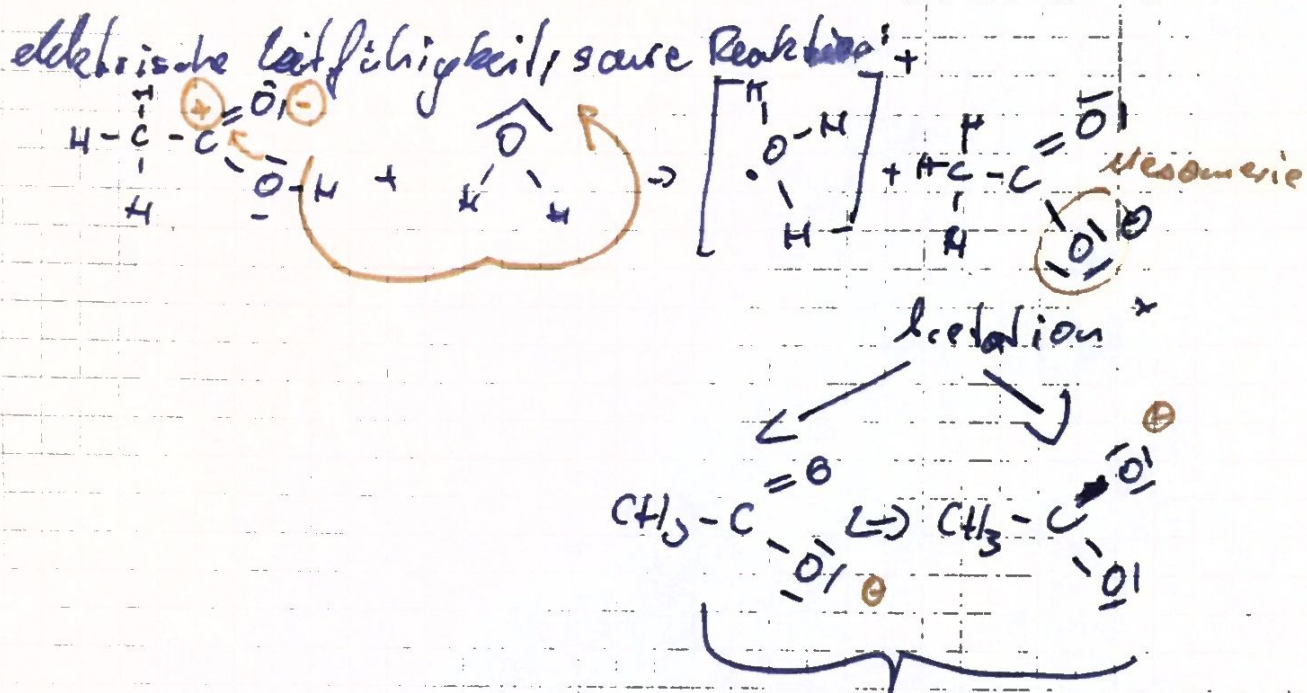 elektrische Leitfähigkeit, saure Reaktion
H H +
H - C - C + = O| - O H - H + H O - H + H - C - C = O| Mesomerie
H O - H + H H → H H O| ⊖
Acetation *
⊖
CH3 - C = O <=> CH3 - C O|
O| ⊖ O|